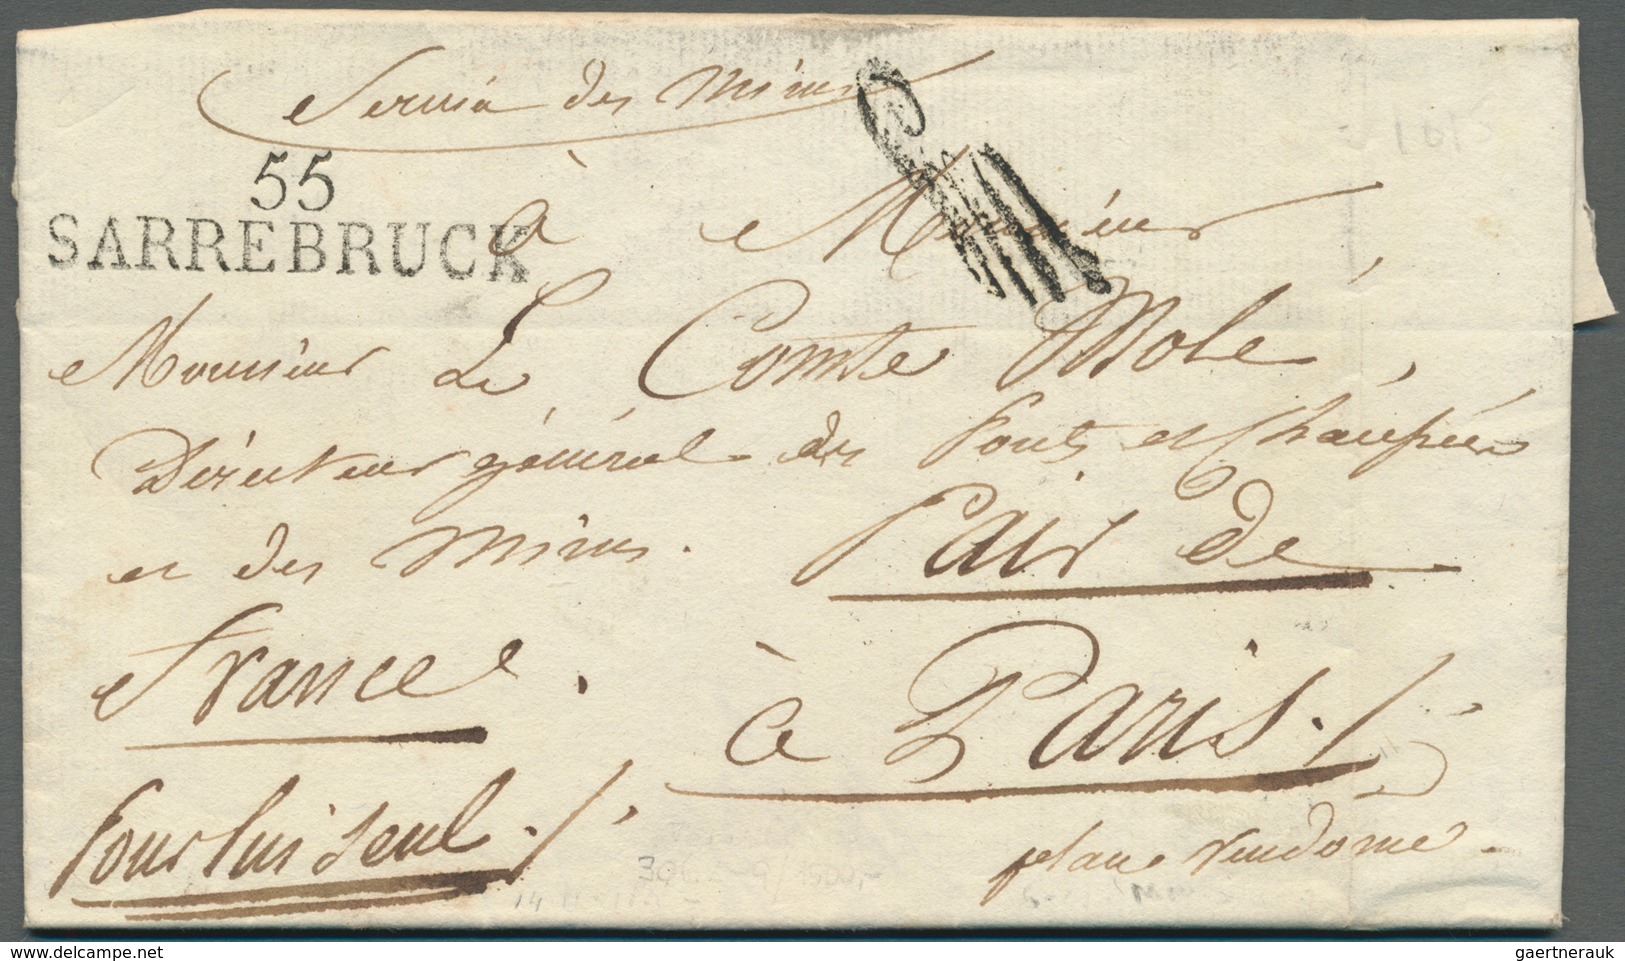 Service des mines
55
SARREBRUCK
à Monsieur
Monsieur Le Comte Molé,
Directeur général des Ponts et Chaussées
et des mines. Pair de
France. à Paris./.
Pour lui seul./.
place vendome
gaertnerauk